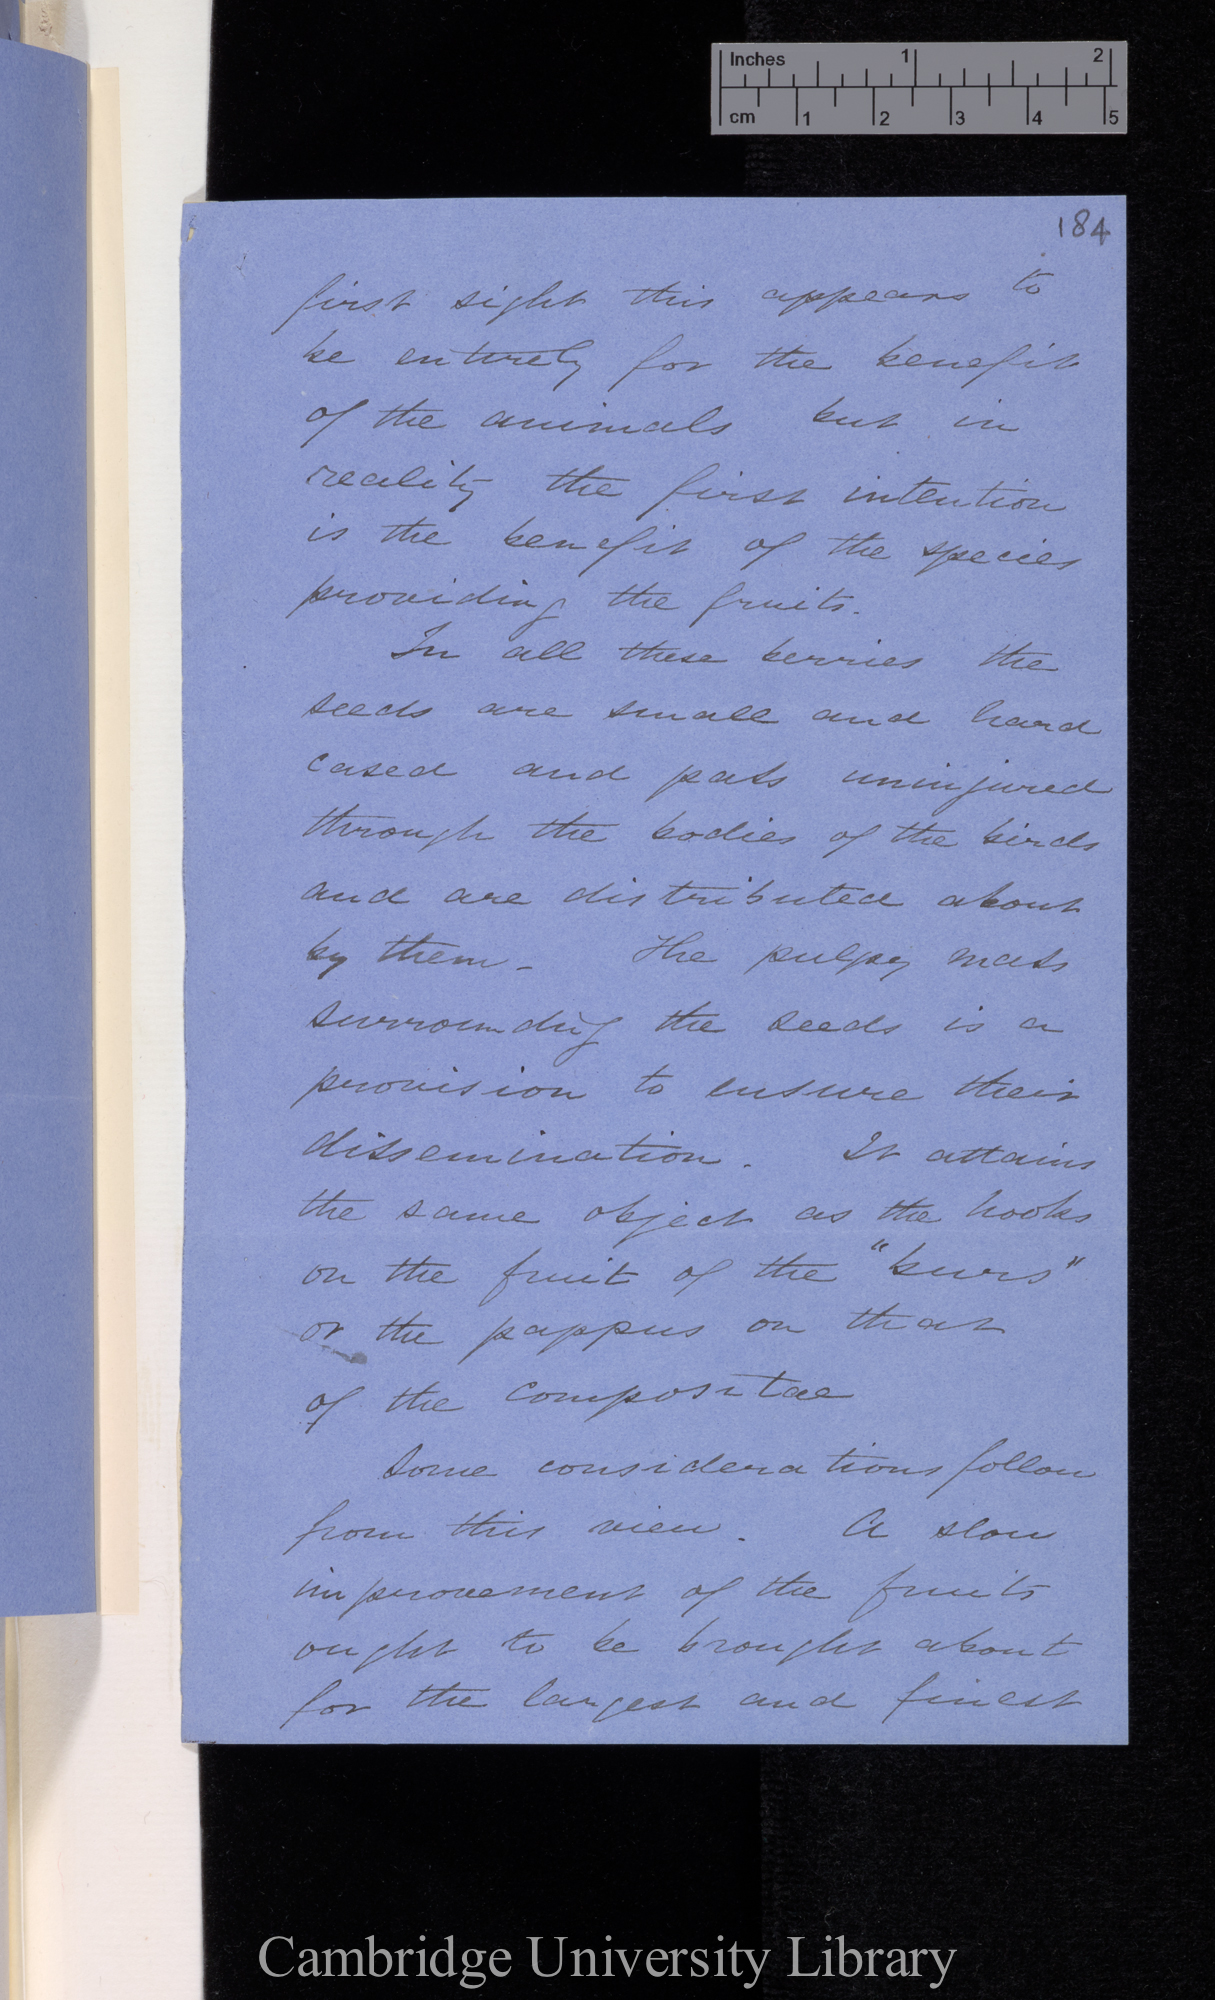 Inches 1 2
cm 1 2 3 4 5
184
first sight this appears to
be entirely for the benefit
of the animals but in
reality the first intention
is the benefit of the species
providing the fruits.
In all these berries the
seeds are small and hard
cased and pass uninjured
through the bodies of the birds
and are distributed about
by them. The pulpy mass
surrounding the seeds is a
provision to ensure their
dissemination. It attains
the same object as the hooks
on the fruit of the "burs"
or the pappus on that
of the compositae
Some considerations follow
from this view. A slow
improvement of the fruits
ought to be brought about
for the largest and finest
Cambridge University Library